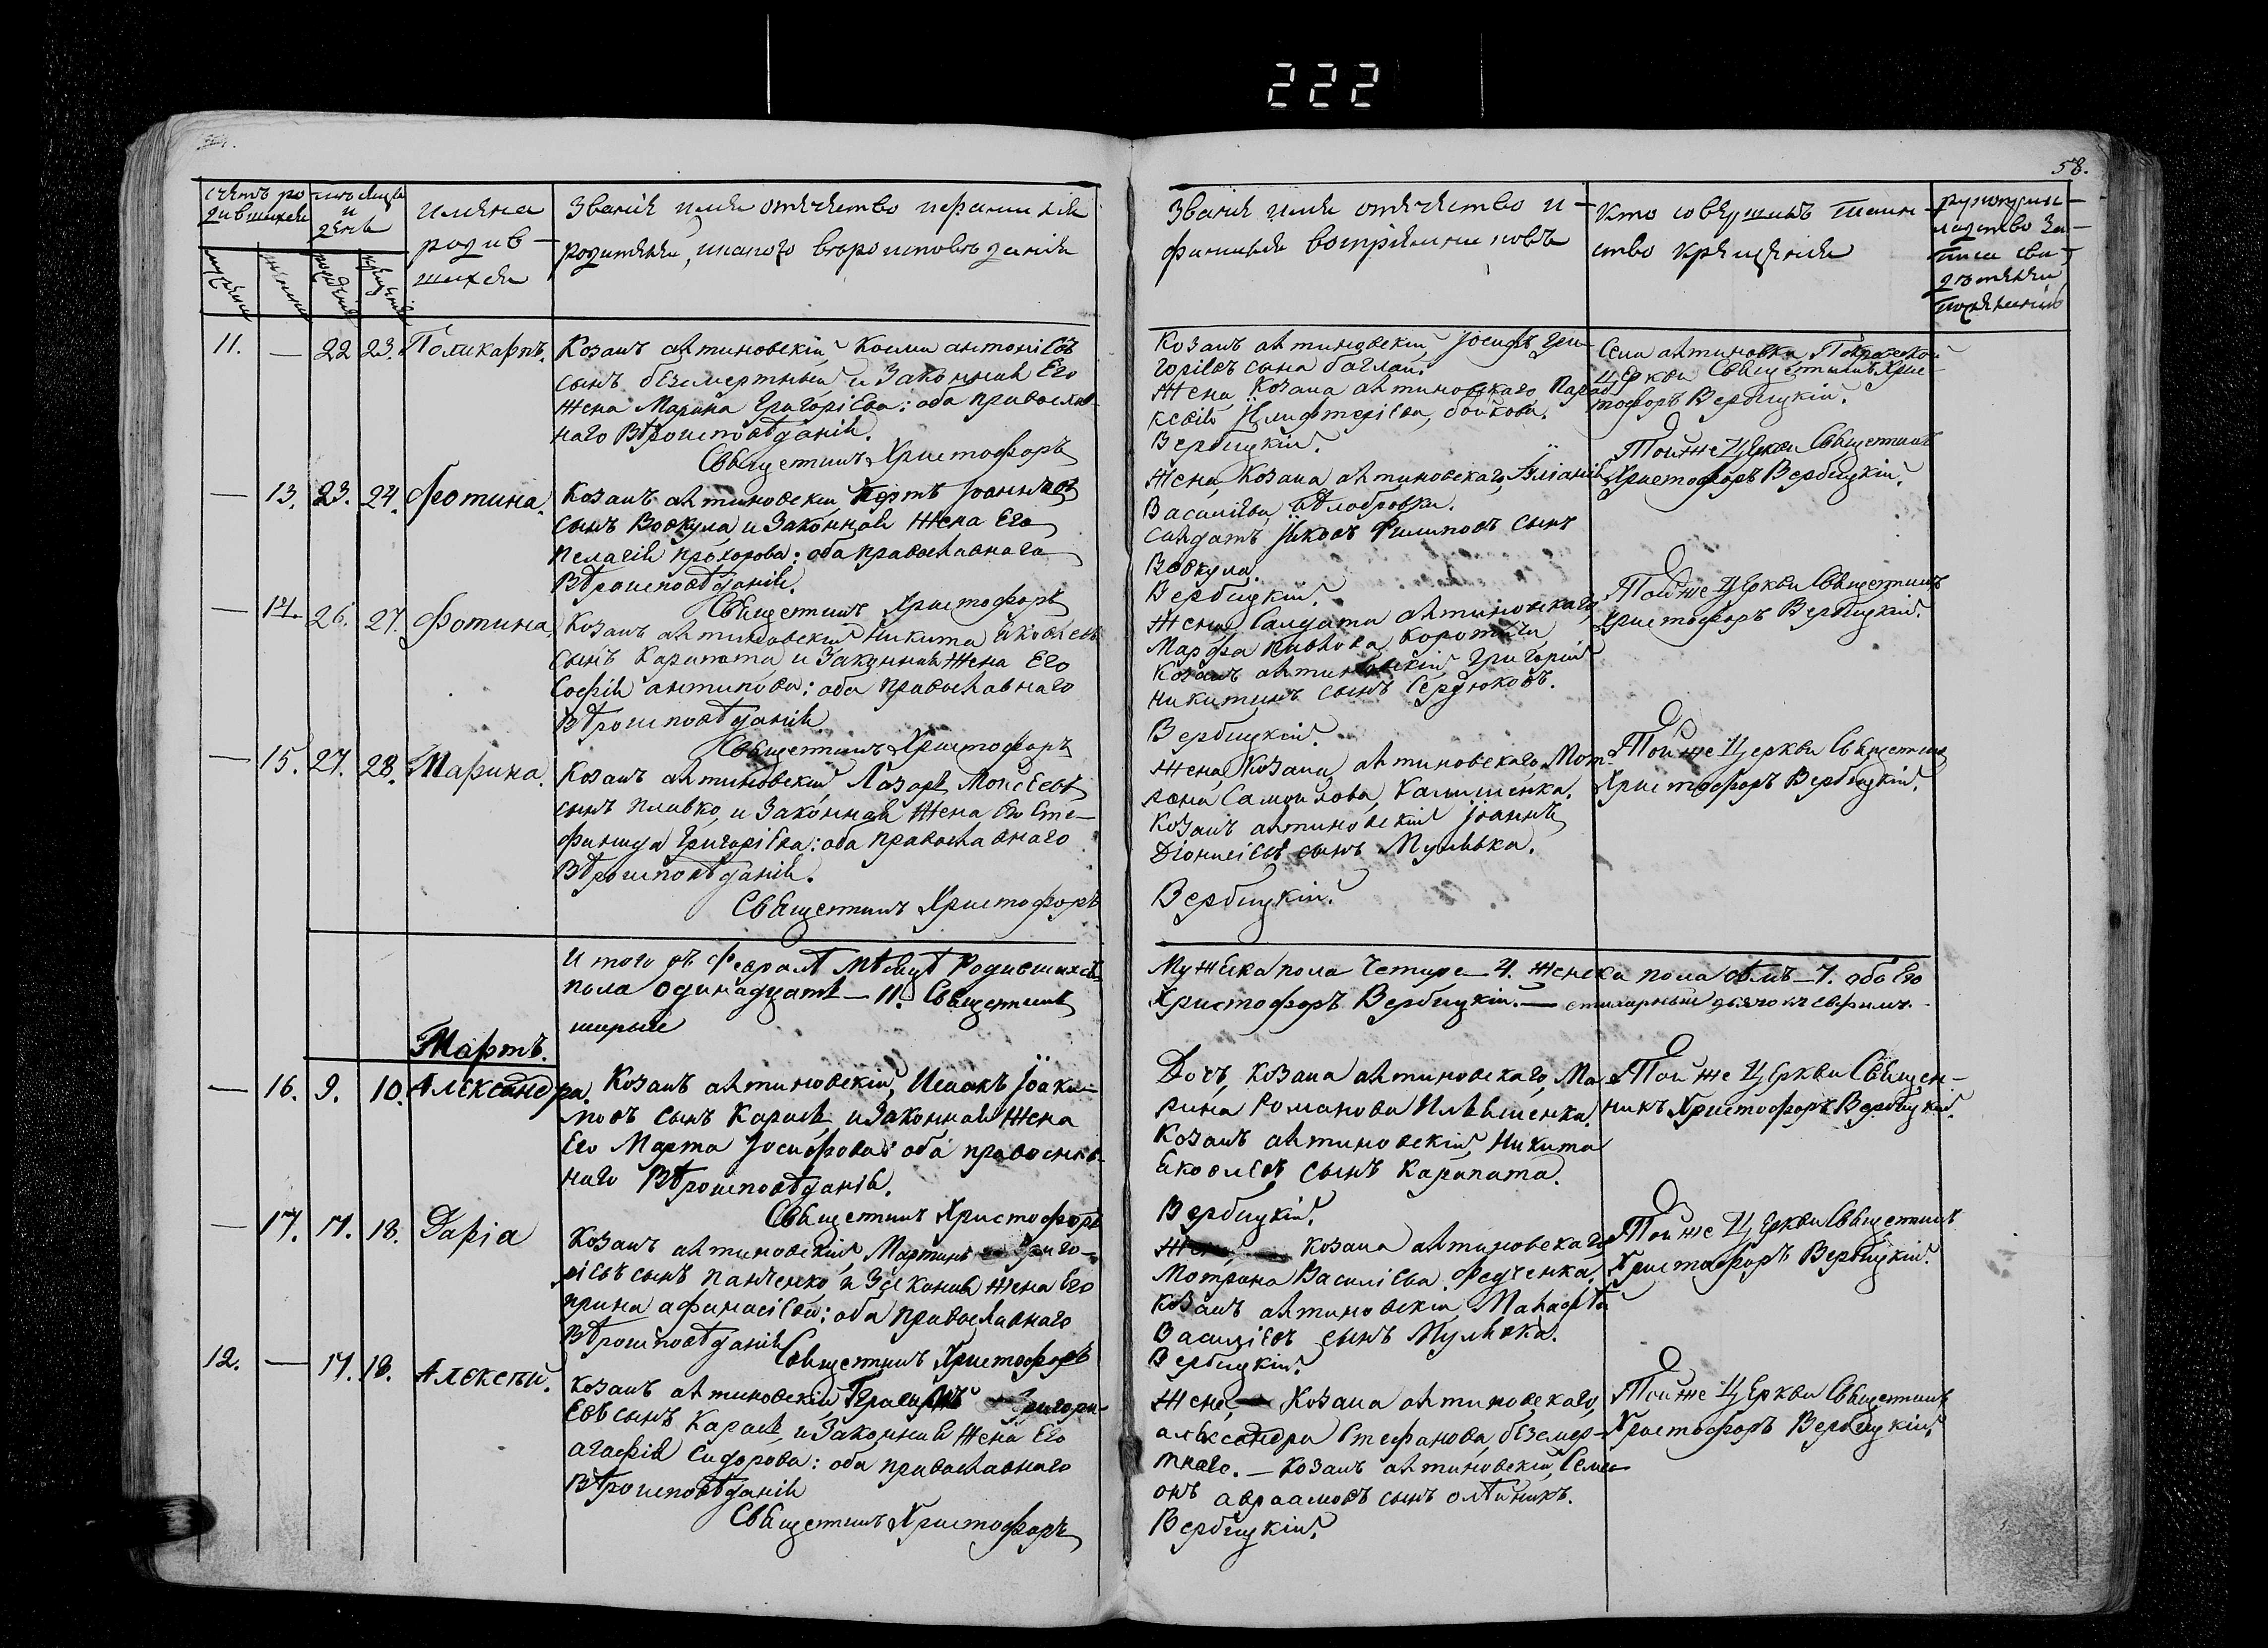 222
58.
Счетъ ро
дившихся
мѣсяцъ
и
день
имена
родив-
шихся
Званіе имя отечество и фамилія
родителей, и какого вѣроисповѣданія
Званіе имя отечество и
фамилія воспріемниковъ
Кто совершалъ таин
ство крещенія
рукоприк
ладство за-
писи сви
дѣтелей
по желанію
11. — 22 23. Поликарпъ.
Козакъ алтиновскій, Косма антоніевъ
сынъ безсмертный и законная Его
жена Марина Григоріева: оба православ-
наго Вѣроисповѣданія.
Священникъ Христофоръ
Козакъ алтиновскій, Іосифъ Гри-
горіевъ сынъ баглай.
Жена Козака алтиновскаго Парас
кевія Елифтеріева, бойкова.
Вербицкій.
Села алтиновки Покровской
церкви Священникъ Хрис-
тофоръ Вербицкій.
— 13. 23. 24. Фотина.
Козакъ алтиновскій Петръ Іоанновъ
сынъ Вовкула, и Законная Жена Его
Пелагія прохорова: оба православнаго
Вѣроисповѣданія.
Священникъ Христофоръ
Жена Козака алтиновскаго, Уліанія
Василіева, бѣлобровка.
Салдатъ Яковъ Филиповъ сынъ
Вовкула.
Вербицкій.
Той же Церкви Священникъ
Христофоръ Вербицкій.
— 14. 26. 27. Фотина.
Козакъ алтиновскій Никита Яковлевъ
сынъ Карапата и Законная Жена Его
Софія антипова: оба православнаго
Вѣроисповѣданія
Священникъ Христофоръ
Жена Салдата алтиновскаго,
Марфа Павлова Короткая
Козакъ алтиновскій Григорій
Никитинъ сынъ Сердюковъ.
Вербицкій.
Той же Церкви Священникъ
Христофоръ Вербицкій.
— 15. 27. 28. Марина.
Козакъ алтиновскій, Лазарь Моисеевъ
сынъ пливко, и Законная Жена Его Сте-
фанида Григоріева: оба православнаго
Вѣроисповѣданія.
Священникъ Христофоръ
Жена Козака алтиновскаго, Мот-
рона Самойлова, Калишенка.
Козакъ алтиновскій Іоаннъ
Діонисіевъ сынъ Мулявка.
Вербицкій.
Той же Церкви Священникъ
Христофоръ Вербицкій.
И того въ Февралѣ Мѣсяцѣ Родившихся
пола Одинадцать — 11. Священникъ
Мужеска пола Четыре — 4. женска пола семъ — 7. обоЕго
Христофоръ Вербицкій. — стихарный дьячокъ
Мартъ.
— 16. 9. 10. Александра.
Козакъ алтиновскій, Исаакъ Іоаки-
мовъ сынъ Карась, и Законная Жена
Его Марта Іосифова: оба православ-
наго Вѣроисповѣданія.
Священникъ Христофоръ
Дочь, Козака алтиновскаго, Ма-
рина Романова Ильяшенка.
Козакъ алтиновскій, Никита
Яковлевъ сынъ Карапата.
Вербицкій.
Той же Церкви Священ-
никъ Христофоръ Вербицкій.
— 17. 17. 18. Даріа
Козакъ алтиновскій, Мартинъ Григо-
ріевъ сынъ Панченко, и Законная Жена Его
Ирина афанасіева: оба православнаго
Вѣроисповѣданія
Священникъ Христофоръ
Жена Козака алтиновскаго
Мотрона Василіева Федченка.
Козакъ алтиновскій
Василіевъ сынъ Мулявка.
Вербицкій.
Той же Церкви Священникъ
Христофоръ Вербицкій.
12. — 17. 18. Алексѣй.
Козакъ алтиновскій, Григорі-
Евъ сынъ Карась, и Законная Жена Его
агафія Сидорова: оба православнаго
Вѣроисповѣданія
Священникъ Христофоръ
Жена Козака алтиновскаго,
александра Стефанова, безсмер-
тнаго. — Козакъ алтиновскій, Симе-
онъ авраамовъ сынъ олѣйникъ.
Вербицкій.
Той же Церкви Священникъ
Христофоръ Вербицкій.